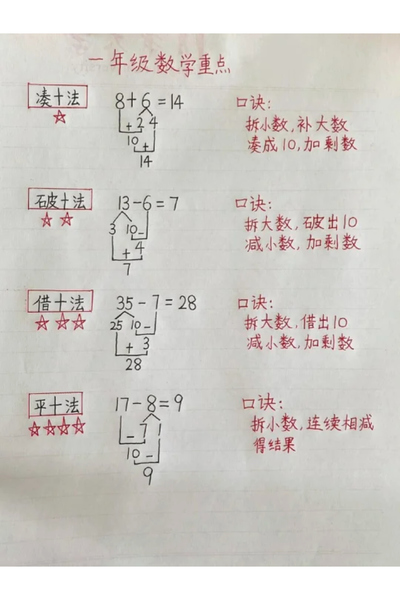 一年级数学重点
凑十法
8+6=14
+2 4
10 +
14
口诀:
拆小数,补大数
凑成10,加剩数
破十法
13-6=7
3 10-
4
+
7
口诀:
拆大数,破出10
减小数,加剩数
借十法
35-7=28
25 10-
+ 3
28
口诀:
拆大数,借出10
减小数,加剩数
平十法
17-8=9
- 7 1
10 -
9
口诀:
拆小数,连续相减
得结果